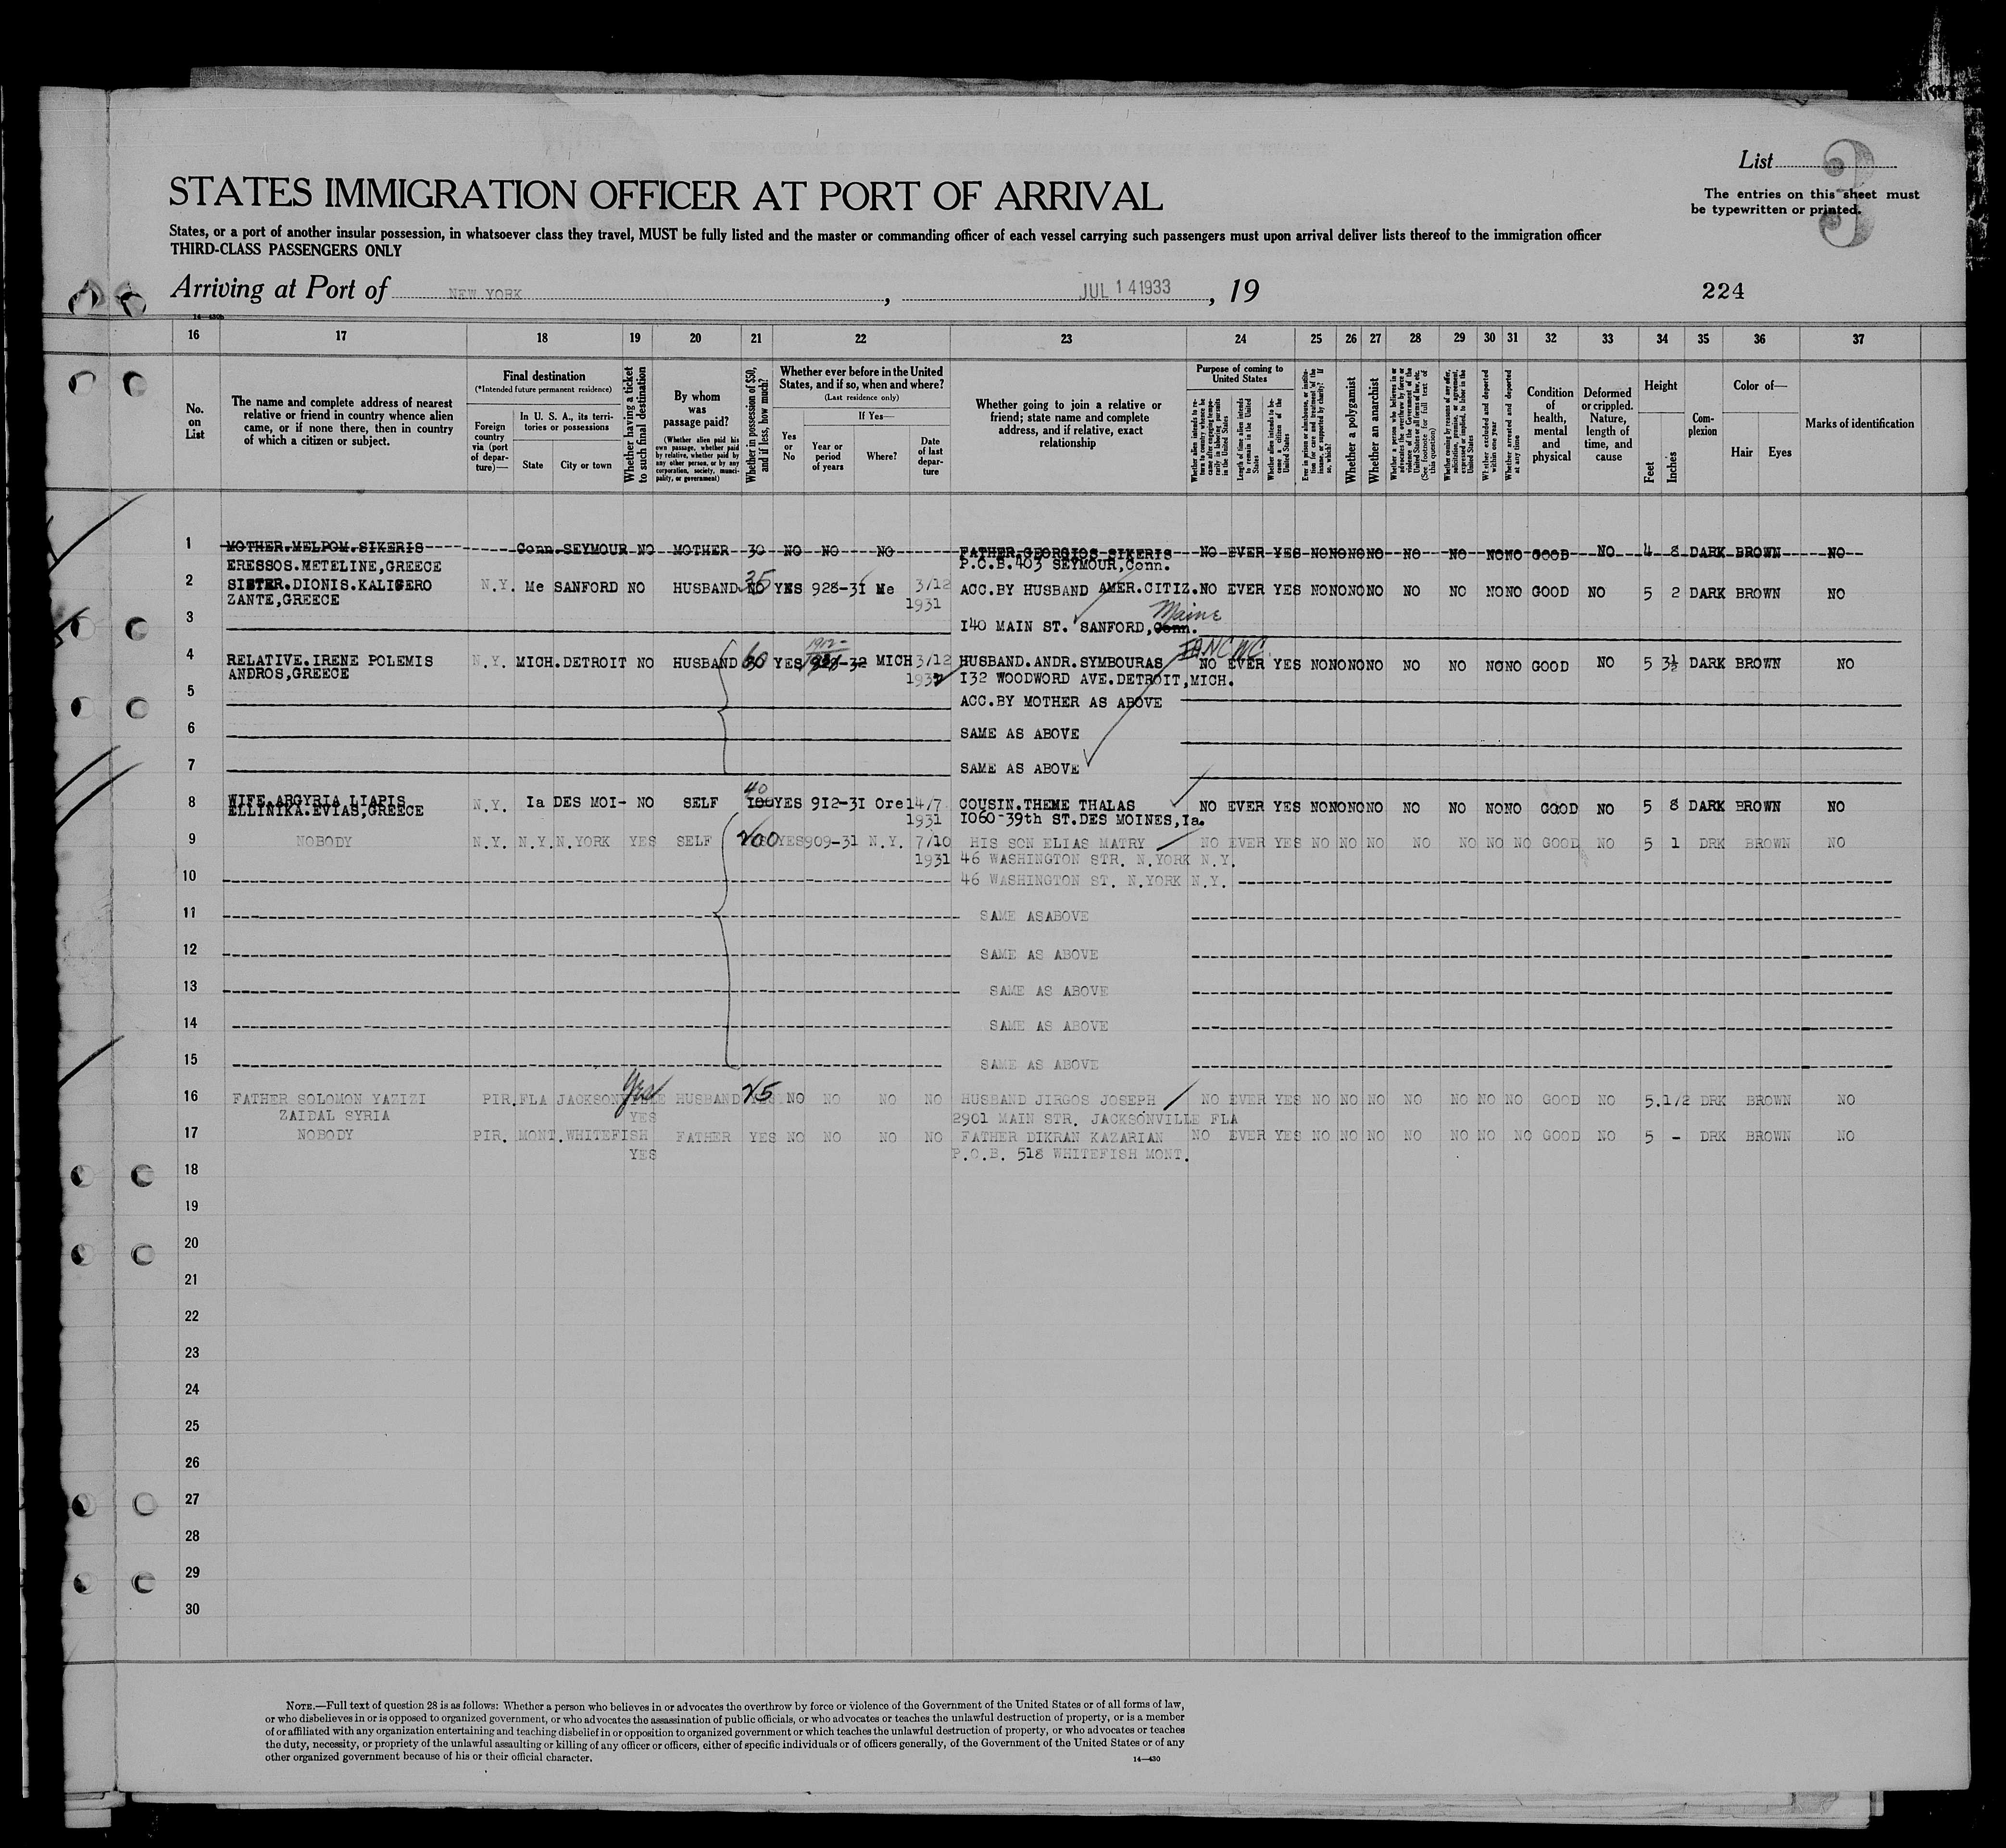 List
3
The entries on this sheet must
be typewritten or printed.
STATES IMMIGRATION OFFICER AT PORT OF ARRIVAL
States, or a port of another insular possession, in whatsoever class they travel, MUST be fully listed and the master or commanding officer of each vessel carrying such passengers must upon arrival deliver lists thereof to the immigration officer
THIRD-CLASS PASSENGERS ONLY
Arriving at Port of NEW YORK, JUL 14 1933, 19
224
14—430b
16 17 18 19 20 21 22 23 24 25 26 27 28 29 30 31 32 33 34 35 36 37
No. on List
The name and complete address of nearest relative or friend in country whence alien came, or if none there, then in country of which a citizen or subject.
Final destination
(*Intended future permanent residence)
Foreign country via (port of departure)—
In U. S. A., its territories or possessions
State
City or town
Whether having a ticket to such final destination
By whom was passage paid?
(Whether alien paid his own passage, whether paid by relative, whether paid by any other person, or by any corporation, society, municipality, or government)
Whether in possession of $50, and if less, how much?
Whether ever before in the United States, and if so, when and where?
(Last residence only)
Yes or No
If Yes—
Year or period of years
Where?
Date of last departure
Whether going to join a relative or friend; state name and complete address, and if relative, exact relationship
Purpose of coming to United States
Whether alien intends to return to country whence he came after engaging temporarily in laboring pursuits in the United States
Length of time alien intends to remain in the United States
Whether alien intends to become a citizen of the United States
Ever in prison or almshouse, or institution for care and treatment of the insane, or supported by charity? If so, which?
Whether a polygamist
Whether an anarchist
Whether a person who believes in or advocates the overthrow by force or violence of the Government of the United States or all forms of law, etc. (See footnote for full text of this question)
Whether coming by reasons of any offer, solicitation, promise, or agreement, expressed or implied, to labor in the United States
Whether excluded and deported within one year
Whether arrested and deported at any time
Condition of health, mental and physical
Deformed or crippled. Nature, length of time, and cause
Height
Feet
Inches
Complexion
Color of—
Hair
Eyes
Marks of identification
1 MOTHER.MELPOM.SIKERIS Conn. SEYMOUR NO MOTHER 30 NO NO NO FATHER.GEORGIOS SIKERIS NO EVER YES NO NO NO NO NO NO NO NO GOOD NO 4 8 DARK BROWN NO
ERESSOS.METELINE,GREECE P.O.B.403 SEYMOUR,Conn.
2 SISTER.DIONIS.KALIGERO N.Y. Me SANFORD NO HUSBAND NO 35 YES 928-31 Me 3/12 ACC.BY HUSBAND AMER.CITIZ. NO EVER YES NO NO NO NO NO NO NO NO GOOD NO 5 2 DARK BROWN NO
ZANTE,GREECE 1931
3 140 MAIN ST. SANFORD, Conn. Maine
4 RELATIVE.IRENE POLEMIS N.Y. MICH. DETROIT NO HUSBAND 60 YES 1912- MICH 3/12 HUSBAND.ANDR.SYMBOURAS NO EVER YES NO NO NO NO NO NO NO NO GOOD NO 5 3½ DARK BROWN NO
ANDROS,GREECE 1932 132 WOODWORD AVE.DETROIT,MICH.
5 ACC.BY MOTHER AS ABOVE
6 SAME AS ABOVE
7 SAME AS ABOVE
8 WIFE.ARGYRIA LIAPIS N.Y. Ia DES MOI- NO SELF 100 40 YES 912-31 Ore 14/7 COUSIN.THEME THALAS NO EVER YES NO NO NO NO NO NO NO NO GOOD NO 5 8 DARK BROWN NO
ELLINIKA.EVIAS,GREECE 1931 1060-39th ST.DES MOINES,Ia.
9 NOBODY N.Y. N.Y. N.YORK YES SELF 200 YES 909-31 N.Y. 7/10 HIS SON ELIAS MATRY NO EVER YES NO NO NO NO NO NO NO GOOD NO 5 1 DRK BROWN NO
1931 46 WASHINGTON STR. N.YORK N.Y.
10 46 WASHINGTON ST. N.YORK N.Y.
11 SAME ASABOVE
12 SAME AS ABOVE
13 SAME AS ABOVE
14 SAME AS ABOVE
15 SAME AS ABOVE
16 FATHER SOLOMON YAZIZI PIR. FLA JACKSONVILLE Yes HUSBAND 25 NO NO NO NO HUSBAND JIRGOS JOSEPH NO EVER YES NO NO NO NO NO NO NO GOOD NO 5.1/2 DRK BROWN NO
ZAIDAL SYRIA YES 2901 MAIN STR. JACKSONVILLE FLA
17 NOBODY PIR. MONT. WHITEFISH FATHER YES NO NO NO NO FATHER DIKRAN KAZARIAN NO EVER YES NO NO NO NO NO NO NO GOOD NO 5 - DRK BROWN NO
YES P.O.B. 518 WHITEFISH MONT.
18
19
20
21
22
23
24
25
26
27
28
29
30
NOTE.—Full text of question 28 is as follows: Whether a person who believes in or advocates the overthrow by force or violence of the Government of the United States or of all forms of law,
or who disbelieves in or is opposed to organized government, or who advocates the assassination of public officials, or who advocates or teaches the unlawful destruction of property, or is a member
of or affiliated with any organization entertaining and teaching disbelief in or opposition to organized government or which teaches the unlawful destruction of property, or who advocates or teaches
the duty, necessity, or propriety of the unlawful assaulting or killing of any officer or officers, either of specific individuals or of officers generally, of the Government of the United States or of any
other organized government because of his or their official character.
14—430